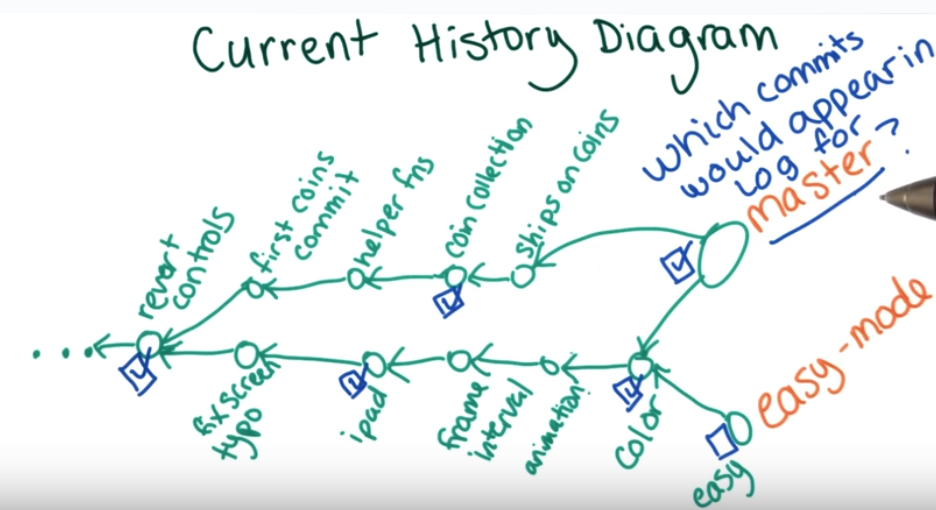 Current History Diagram
which commits
would appear in
log for
master?
revert
controls
first coins
commit
helper fns
coin collection
ships on coins
fix screen
typo
ipad
frame
interval
animation
color
easy-mode
easy